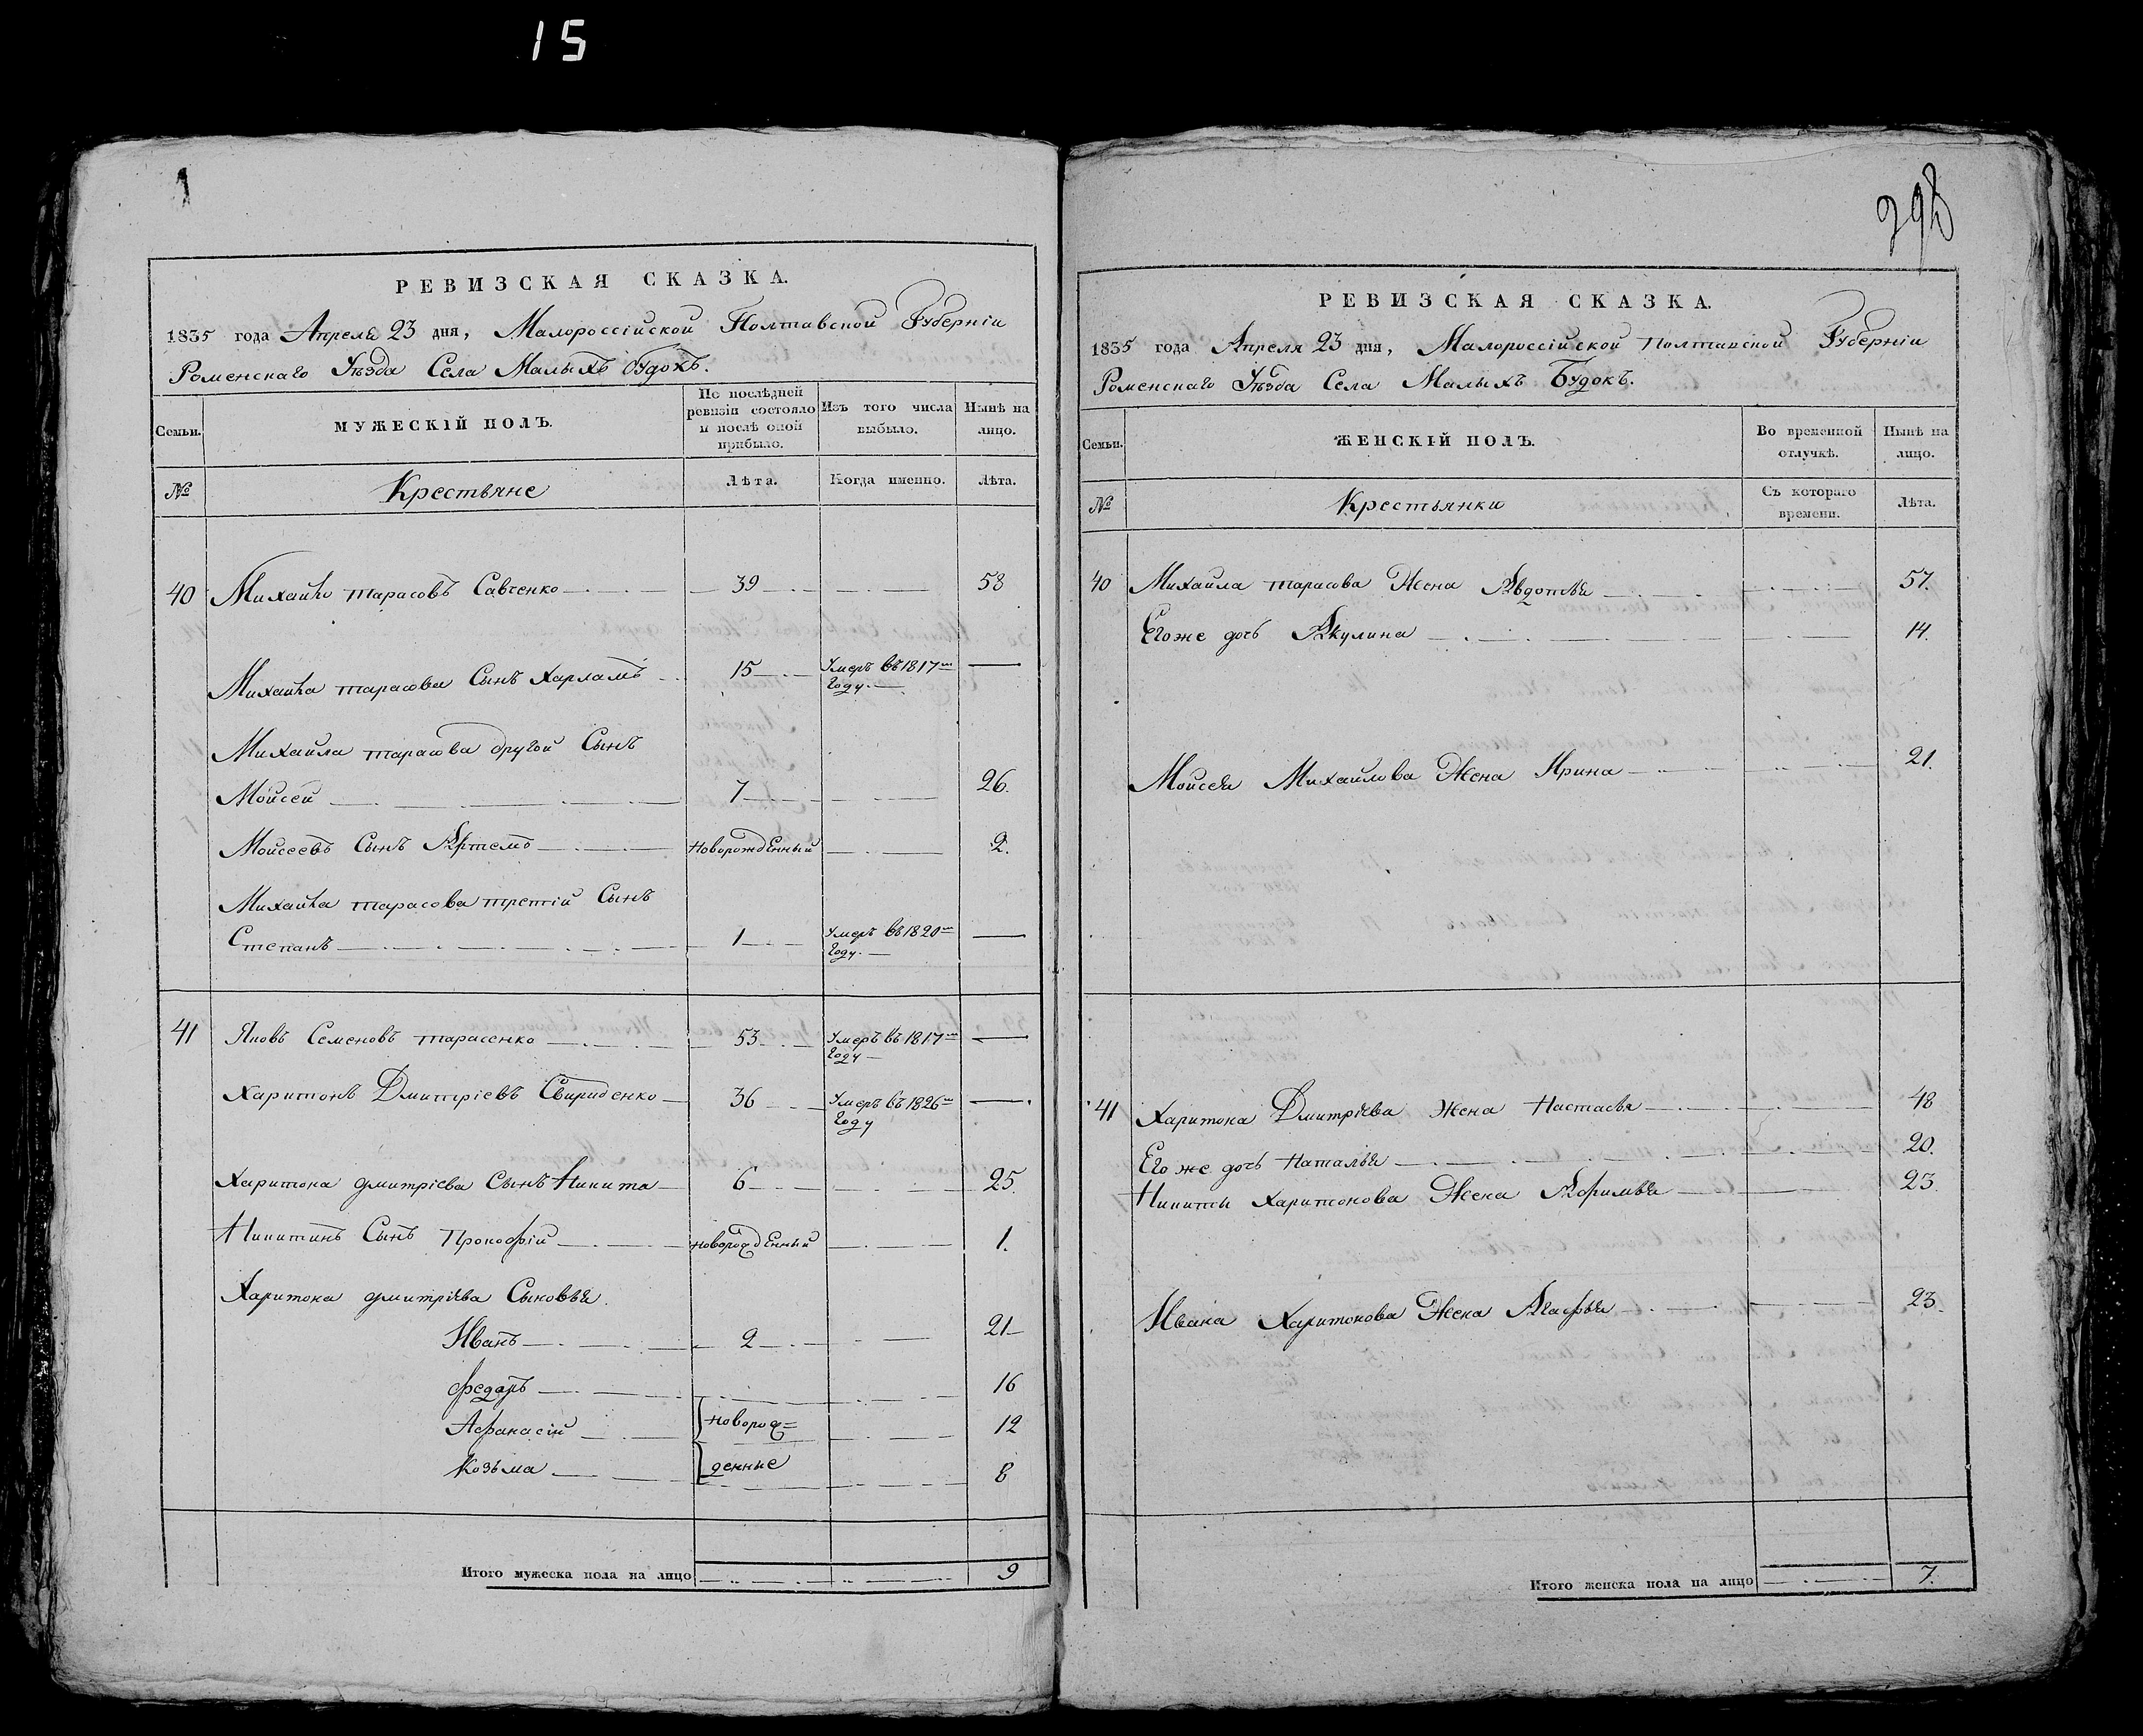 15
298
РЕВИЗСКАЯ СКАЗКА.
1835 года Апреля 23 дня, Малороссійской Полтавской Губерніи
Роменскаго Уѣзда Села Малыхъ Будокъ.
Семьи. МУЖЕСКІЙ ПОЛЪ. По послѣдней ревизіи состояло и послѣ оной прибыло. Изъ того числа выбыло. Нынѣ на лицо.
№ Крестьяне Лѣта. Когда именно. Лѣта.
40 Михайло Тарасовъ Савченко 39 58
Михайла Тарасова Сынъ Харламъ 15 Умеръ въ 1817м
Году.
Михайла Тарасова другой Сынъ
Мойсей 7 26.
Мойсеевъ Сынъ Артемъ Новорожденный 2.
Михайла Тарасова третій Сынъ
Степанъ 1 Умеръ въ 1820м
Году.
41 Яковъ Семеновъ Тарасенко 53 Умеръ въ 1817м
Году
Харитонъ Дмитріевъ Свириденко 36 Умеръ въ 1826м
Году
Харитона Дмитріева Сынъ Никита 6 25.
Никитинъ Сынъ Прокофій новорожденный 1.
Харитона Дмитріева Сыновья.
Иванъ 2 21
Федоръ 16
Афанасій новорож= 12
Козьма денные 8
Итого мужеска пола на лицо 9
РЕВИЗСКАЯ СКАЗКА.
1835 года Апреля 23 дня, Малороссійской Полтавской Губерніи
Роменскаго Уѣзда Села Малыхъ Будокъ.
Семьи. ЖЕНСКІЙ ПОЛЪ. Во временной отлучкѣ. Нынѣ на лицо.
№ Крестьянки Съ котораго времени. Лѣта.
40 Михайла Тарасова Жена Авдотья 57.
Егоже дочь Акулина 14.
Мойсея Михайлова Жена Ирина 21.
41 Харитона Дмитріева Жена Настасья 48
Егоже дочь Наталья 20.
Никиты Харитонова Жена Афимья 23.
Ивана Харитонова Жена Агафья 23.
Итого женска пола на лицо 7.